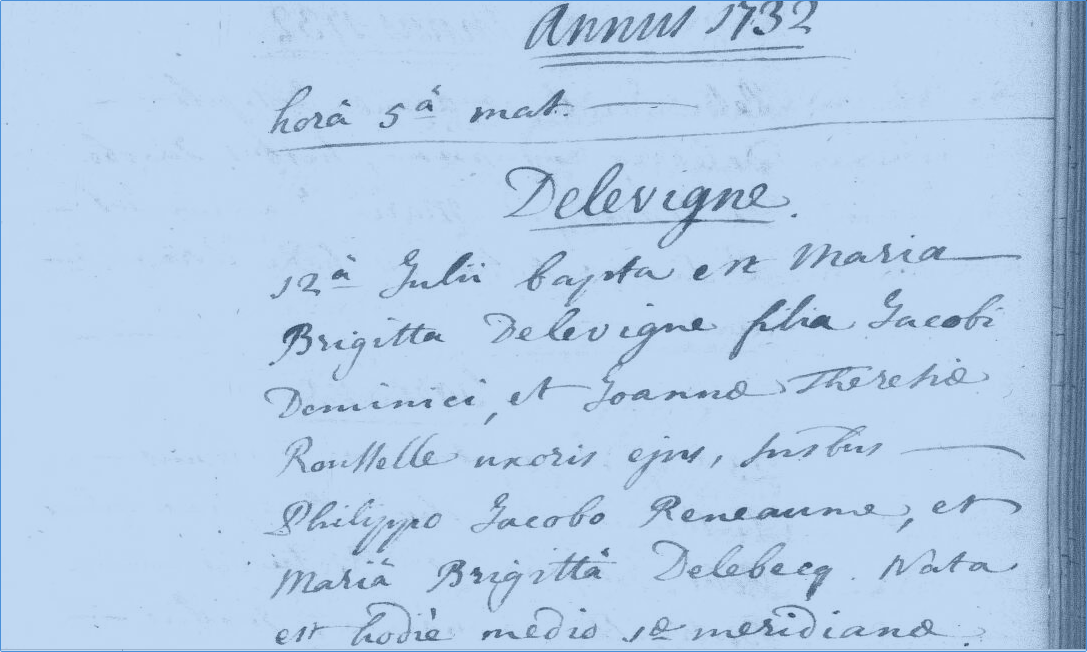 Annus 1732
horâ 5â mat.
Delevigne.
12â Julii bapta est Maria
Brigitta Delevigne filia Jacobi
Dominici, et Joannæ Theresiæ
Rousselle uxoris ejus, susbus
Philippo Jacobo Reneaume, et
Mariâ Brigittâ Delebecq. Nata
est hodiè medio 1æ meridianæ.